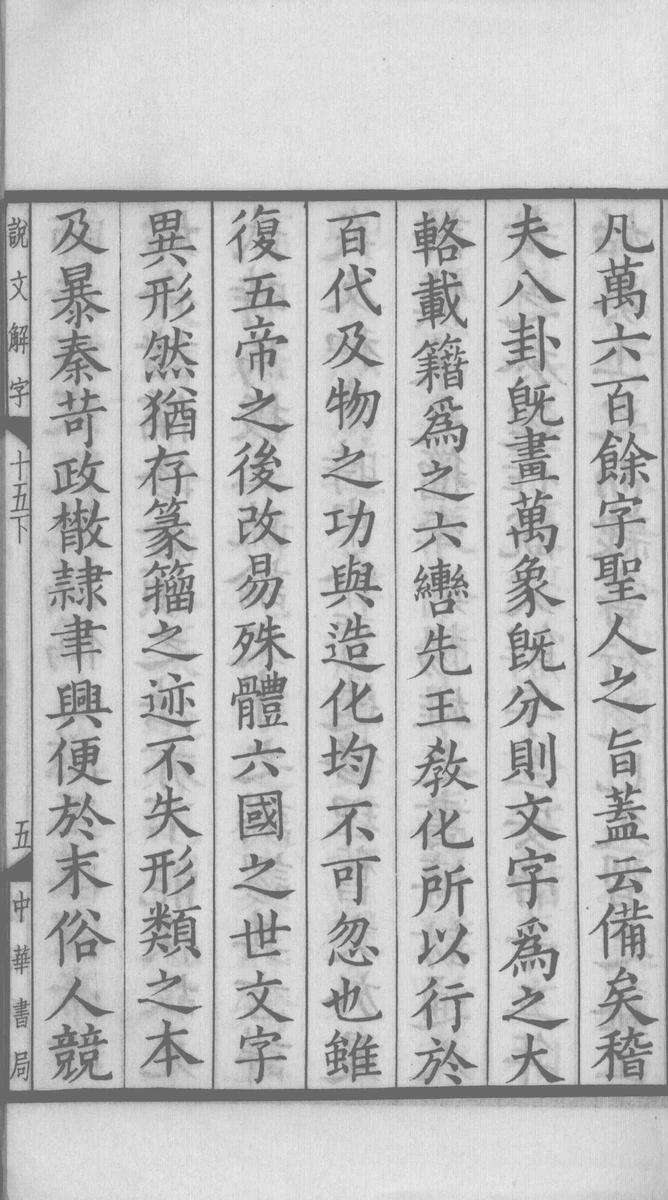 凡萬六百餘字聖人之旨蓋云備矣稽
夫八卦旣畫萬象旣分則文字爲之大
輅載籍爲之六轡先王敎化所以行於
百代及物之功與造化均不可忽也雖
復五帝之後改易殊體六國之世文字
異形然猶存篆籒之迹不失形類之本
及暴秦苛政散隷聿興便於末俗人競
說文解字
十五下
五
中華書局